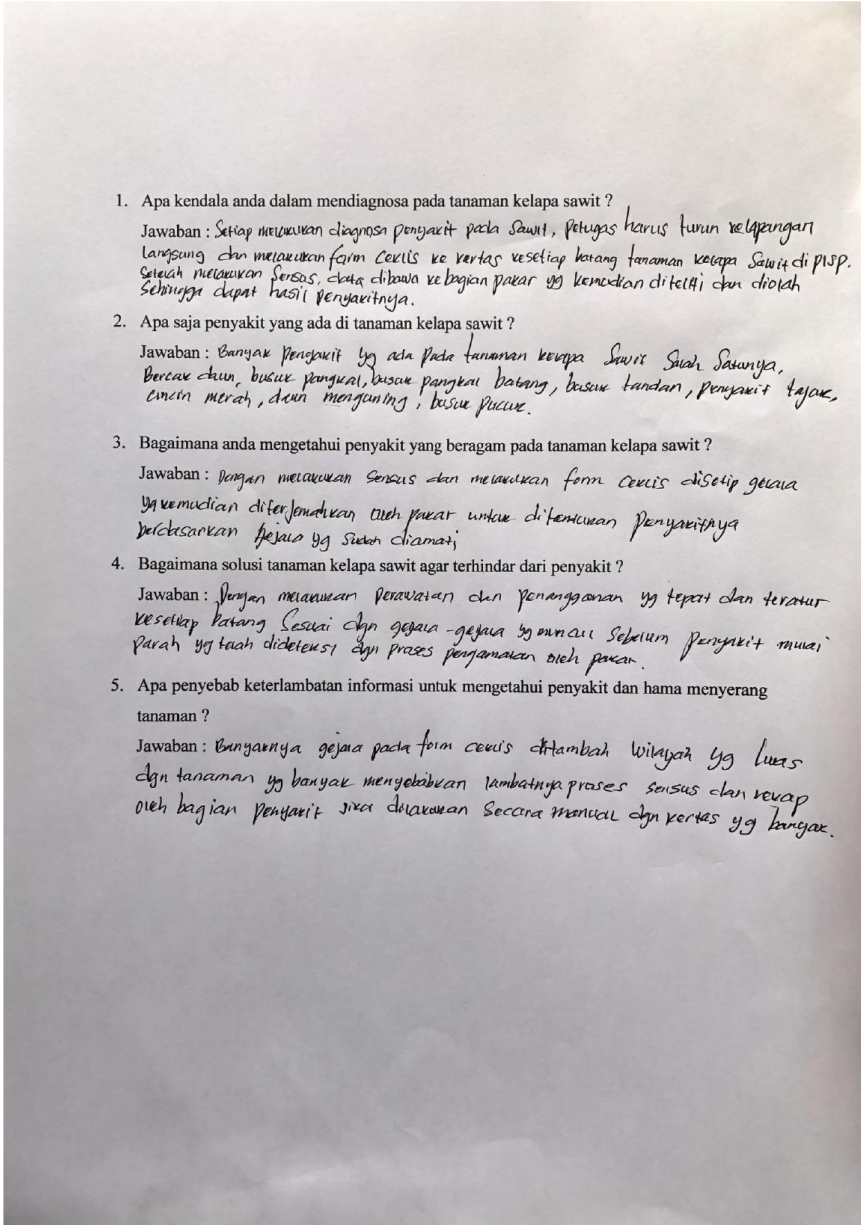 1. Apa kendala anda dalam mendiagnosa pada tanaman kelapa sawit ?
Jawaban : Setiap melakukan diagnosa penyakit pada sawit, petugas harus turun kelapangan
langsung dan melakukan form ceklis ke kertas kesetiap batang tanaman kelapa sawit di PISP.
Setelah melakukan sensus, data dibawa ke bagian pakar yg kemudian diteliti dan diolah
sehingga dapat hasil penyakitnya.
2. Apa saja penyakit yang ada di tanaman kelapa sawit ?
Jawaban : Banyak penyakit yg ada pada tanaman kelapa sawit salah satunya,
Bercak daun, busuk pangkal, busuk pangkal batang, busuk tandan, penyakit tajuk,
cincin merah, daun menguning, busuk pucuk.
3. Bagaimana anda mengetahui penyakit yang beragam pada tanaman kelapa sawit ?
Jawaban : Dengan melakukan sensus dan melakukan form ceklis disetip gejala
yg kemudian diterjemahkan oleh pakar untuk ditentukan penyakitnya
berdasarkan gejala yg sudah diamati
4. Bagaimana solusi tanaman kelapa sawit agar terhindar dari penyakit ?
Jawaban : Dengan melakukan perawatan dan penangganan yg tepat dan teratur
kesetiap batang sesuai dgn gejala-gejala yg muncul sebelum penyakit mulai
parah yg telah dideteksi dgn proses pengamatan oleh pakar.
5. Apa penyebab keterlambatan informasi untuk mengetahui penyakit dan hama menyerang
tanaman ?
Jawaban : Banyaknya gejala pada form ceklis ditambah wilayah yg luas
dgn tanaman yg banyak menyebabkan lambatnya proses sensus dan rekap
oleh bagian penyakit jika dilakukan secara manual dgn kertas yg banyak.